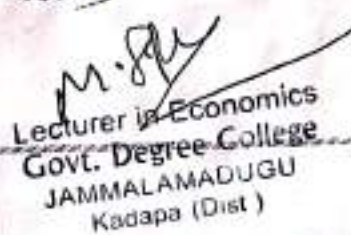 Lecturer in Economics
Govt. Degree College
JAMMALAMADUGU
Kadapa (Dist)